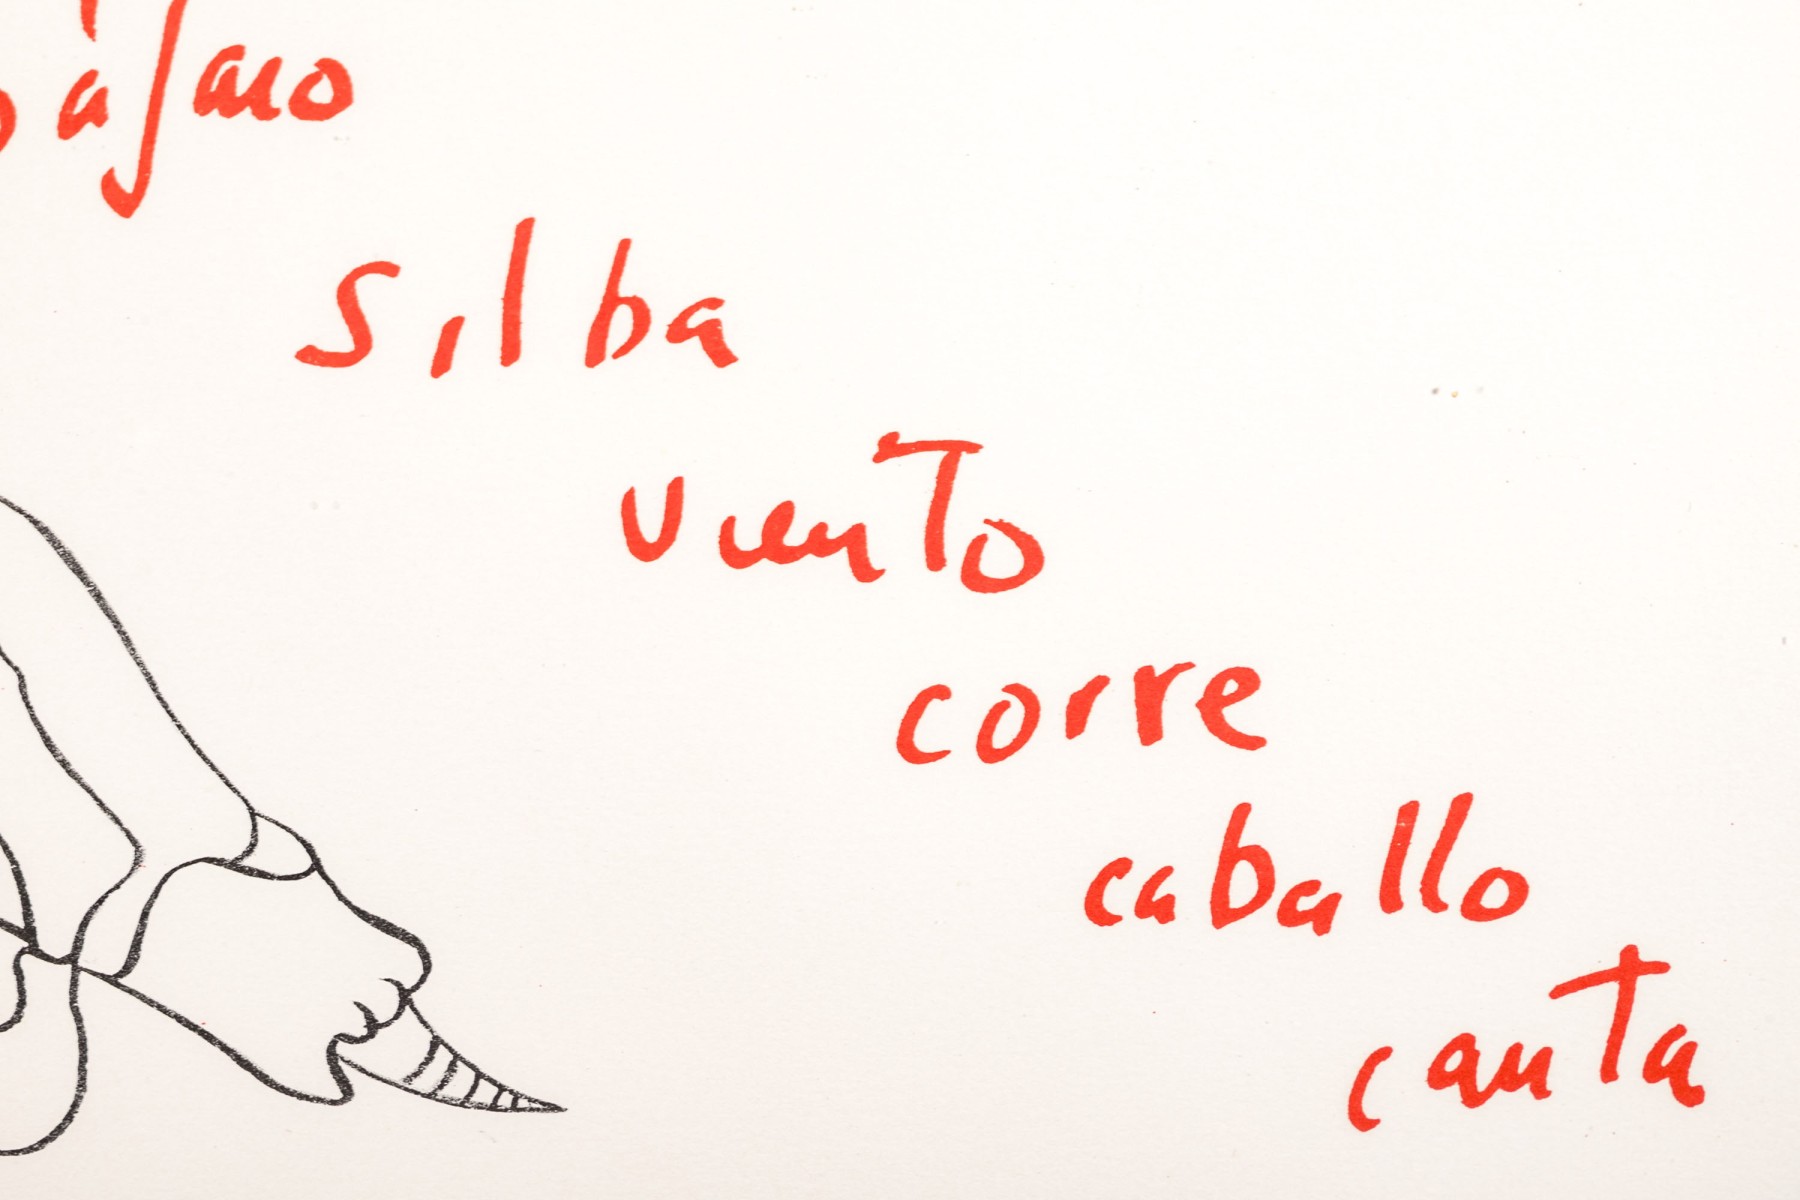 silba
viento
corre
caballo
canta